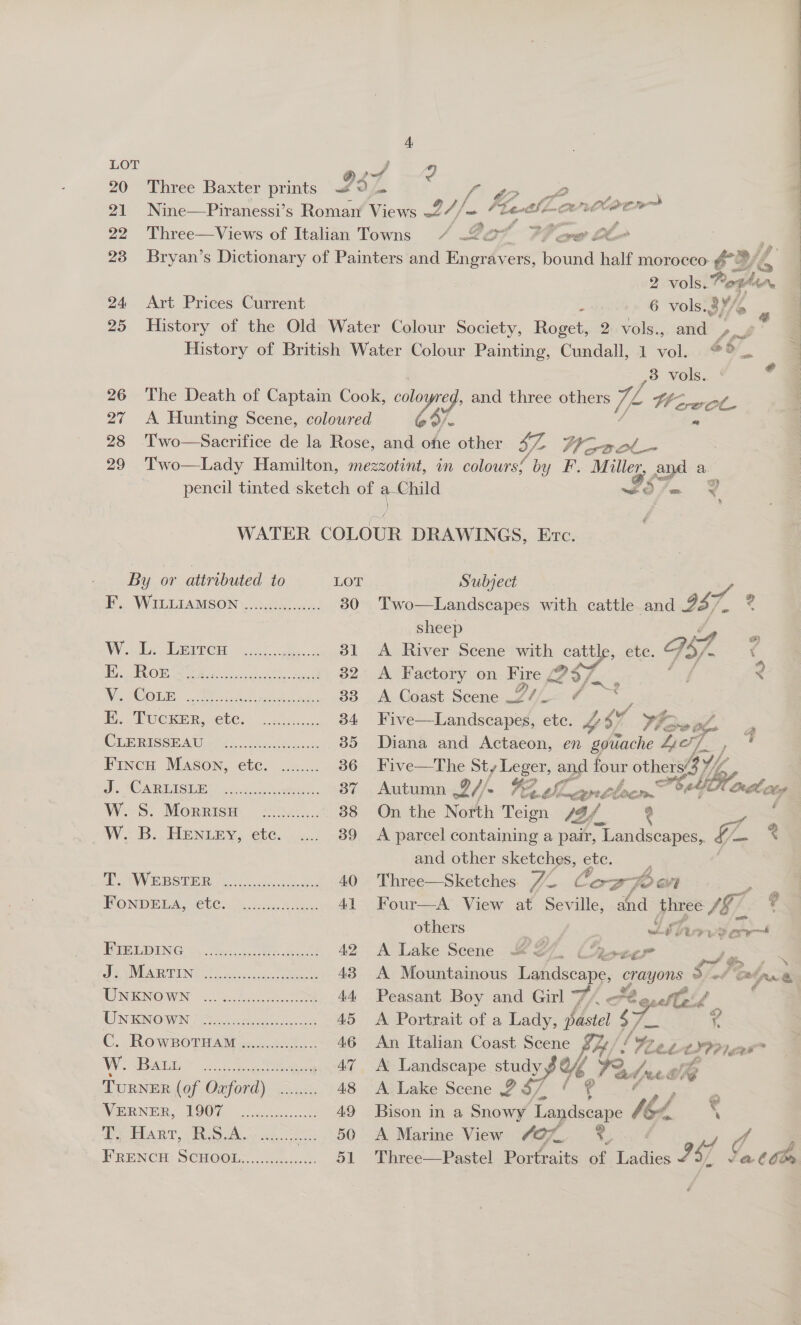 4
LOT
20 Three Baxter prints 25/-
21 Nine—Piranessi's Roman Views 21/-
22 Three—Views of Italian Towns
23 Bryan's Dictionary of Painters and Engravers, bound half morocco
2 vols.
24 Art Prices Current 6 vols.
25 History of the Old Water Colour Society, Roget, 2 vols., and
History of British Water Colour Painting, Cundall, 1 vol.
3 vols.
26 The Death of Captain Cook, coloured, and three others
27 A Hunting Scene, coloured 65/-
28 Two—Sacrifice de la Rose, and one other
29 Two—Lady Hamilton, mezzotint, in colours, by F. Miller, and a
pencil tinted sketch of a Child
WATER COLOUR DRAWINGS, Etc.
By or attributed to LOT Subject
F. Williamson ............... 30 Two—Landscapes with cattle and
sheep
W. L. Leitch ............... 31 A River Scene with cattle, etc.
E. Roe ............... 32 A Factory on Fire 25/- ?
V. Cole ............... 33 A Coast Scene
E. Tucker, etc. ............ 34 Five—Landscapes, etc.
Clerisseau ............... 35 Diana and Actaeon, en gouache
Finch Mason, etc. ........ 36 Five—The St. Leger, and four others
J. Carlisle ............... 37 Autumn 21/-
W. S. Morrish ............ 38 On the North Teign ?
W. B. Henley, etc. .... 39 A parcel containing a pair, Landscapes,
and other sketches, etc.
T. Webster ............... 40 Three—Sketches
Fondela, etc. ............... 41 Four—A View at Seville, and three
others
Fielding ............... 42 A Lake Scene
J. Martin ............... 43 A Mountainous Landscape, crayons
Unknown ............... 44 Peasant Boy and Girl
Unknown ............... 45 A Portrait of a Lady, pastel
C. Rowbotham ............... 46 An Italian Coast Scene
W. Ball ............... 47 A Landscape study
Turner (of Oxford) ........ 48 A Lake Scene
Verner, 1907 ............... 49 Bison in a Snowy Landscape
T. Hart, R.S.A. ............ 50 A Marine View
French School............... 51 Three—Pastel Portraits of Ladies